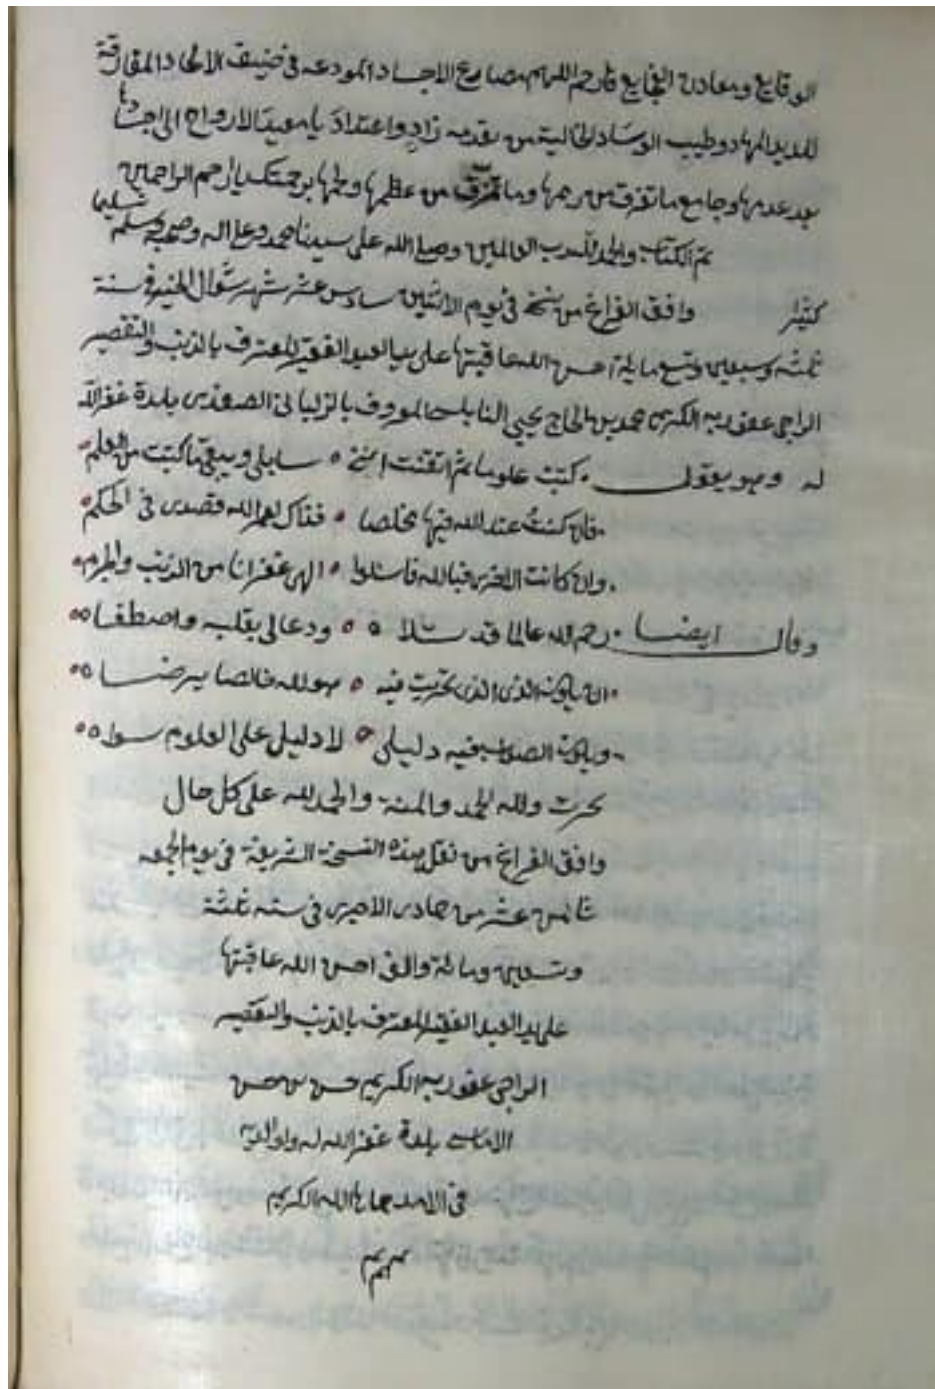 الوقايع ومعادن الفجايع فارحم اللهم مصارع الاجساد المودعه في ضيق الالحاد المفارقة
للذيذ المهاد وطيب الوساد الخالية من تقدمه زاد واعتداد يا معيد الارواح الى اجسادها
بعد عدمها وجامع ما تفرق من رممها وما تمزق من عظمها ولحمها برحمتك يا ارحم الراحمين
تم الكتاب والحمد لله رب العالمين وصلى الله على سيدنا محمد وعلى اله وصحبه وسلم تسليما
كثيرا وافق الفراغ من نسخه في يوم الاثنين سادس عشر شهر شوال المنير في سنة
ثلثه وسبعين وتسع مائة احسن الله عاقبتها على يد العبد الفقير المعترف بالذنب والتقصير
الراجي عفو ربه الكريم محمد بن الحاج يحيى النابلسي المعروف بالزلباني الصفدي بلدة غفر الله
له وهو يقول كتبت علوما ثم اتقنت نسخه سابلى ويبقى ما كتبت من العلم
فان كنت عند الله فيها مخلصا فذاك لعمر الله قصدى فى الحكم
وان كانت الاخرى فبالله فاسئلوا الهى غفرانا من الذنب والجرم
وقال ايضا رحم الله عالما قد تلا ودعا لى بقلبه واصطفا
ان يكون الذى الذى تحريت فيه هو لله خالصا يرضا
ويكون الصواب فيه دليلى لا دليل على العلوم سوا
تحرت ولله الحمد والمنة والحمد لله على كل حال
وافق الفراغ من نقل هذه النسخة الشريفة في يوم الجمعه
ثامن عشر من جمادى الاخرى في سنه ثلثة
وتسعين ومائة والف احسن الله عاقبتها
على يد العبد الفقير المعترف بالذنب والتقصير
الراجى عفو ربه الكريم حسن بن حسن
بلدة غفر الله له ولوالديه
فى الامد حماها الله الكريم